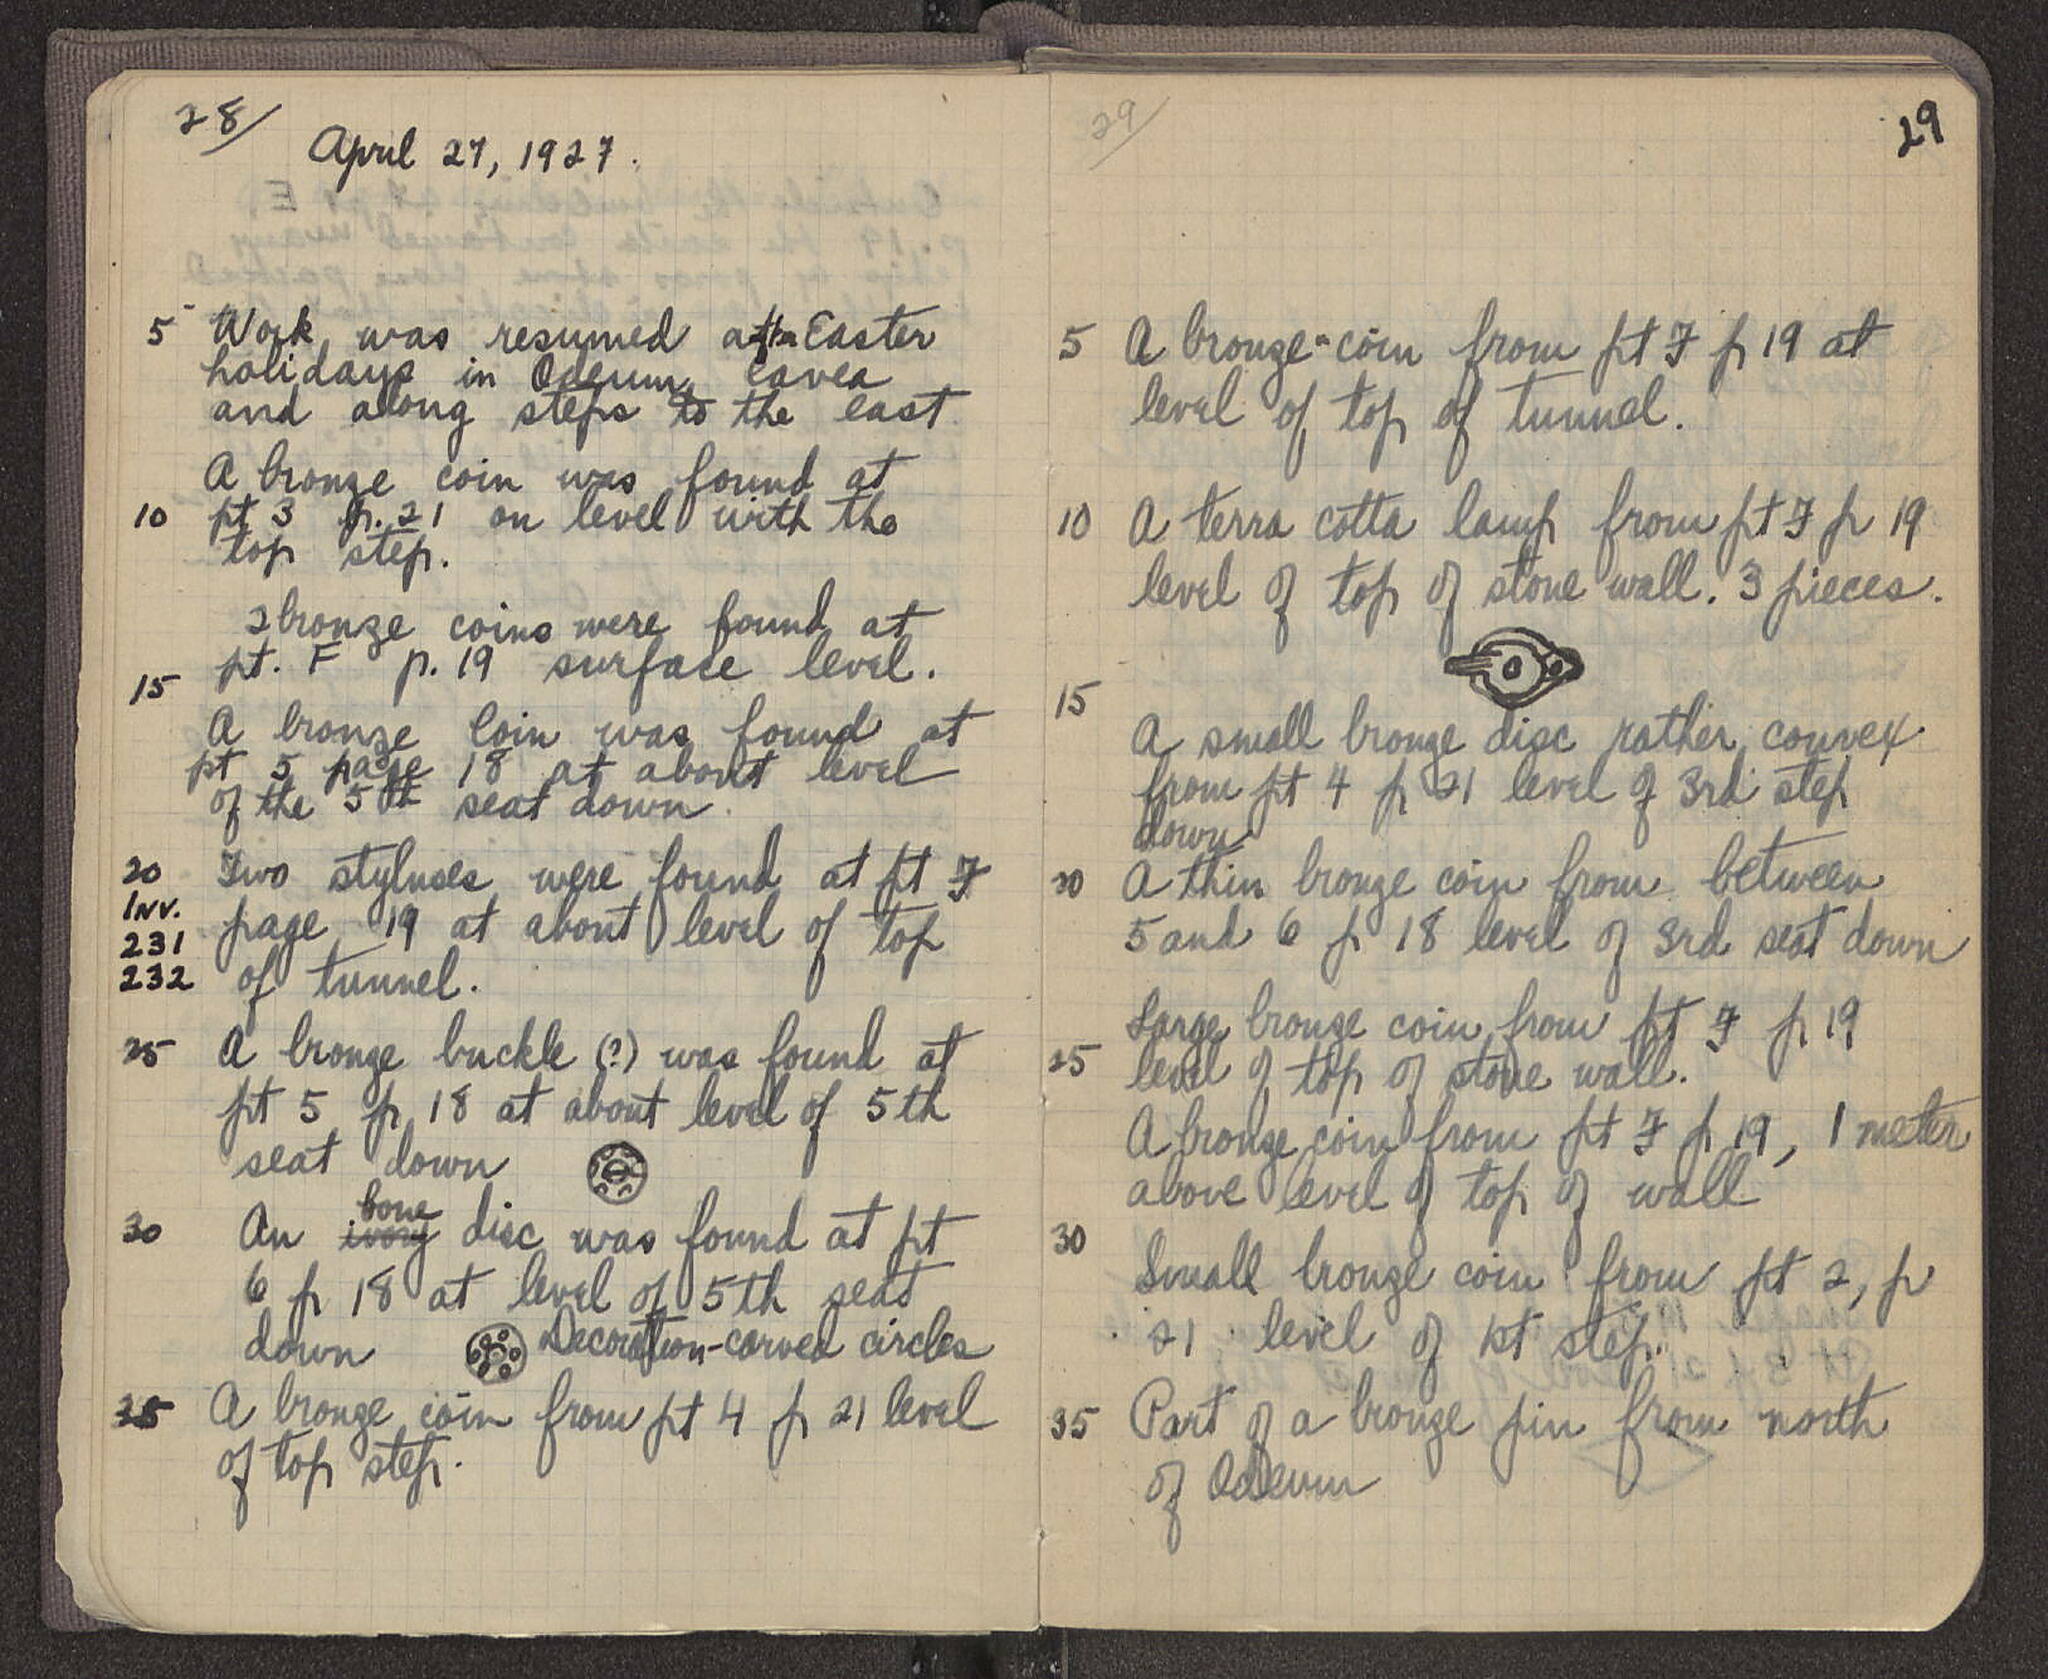 28/
April 27, 1927.
5 Work was resumed after Easter
holidays in Odeum, Cavea
and along steps to the east
A bronze coin was found at
10 pt 3 p. 21 on level with the
top step.
2 bronze coins were found at
pt. F p. 19 surface level.
15
A bronze Coin was found at
pt 5 page 18 at about level
of the 5th seat down.
20 Two styluses were found at pt F
Inv.
231 page 19 at about level of top
232 of tunnel.
25 A bronze buckle (?) was found at
pt 5 p 18 at about level of 5th
seat down
bone
30 An ivory disc was found at pt
6 p 18 at level of 5th seat
down Decoration-carved circles
35 A bronze coin from pt 4 p 21 level
of top step.
29/
29
5 A bronze coin from pt F p 19 at
level of top of tunnel.
10 A terra cotta lamp from pt F p 19
level of top of stone wall. 3 pieces.
15
A small bronze disc rather convex
from pt 4 p 21 level of 3rd step
down
20 A thin bronze coin from between
5 and 6 p 18 level of 3rd seat down
Large bronze coin from pt F p 19
25 level of top of stone wall.
A bronze coin from pt F p 19, 1 meter
above level of top of wall
30
Small bronze coin from pt 2, p
21 level of 1st step.
35 Part of a bronze pin from north
of Odeum